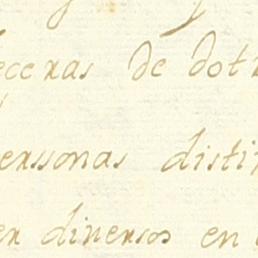 eceras de dotr
perssonas distin
er diuersos en